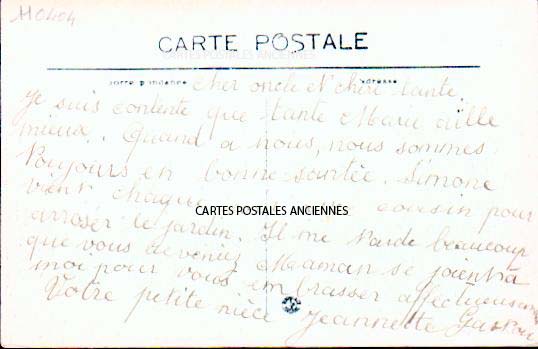 M0404
CARTE POSTALE
CARTES POSTALES ANCIENNES
Correspondance Adresse
Cher oncle et chère tante.
Je suis contente que tante Marie aille
mieux. Quand a nous, nous sommes
toujours en bonne santée. Simone
vient chaque cousin pour
CARTES POSTALES ANCIENNES
arroser le jardin. Il me tarde beaucoup
que vous deveniez Maman se joient à
moi pour vous embrasser affectueusement
Votre petite nièce Jeannette